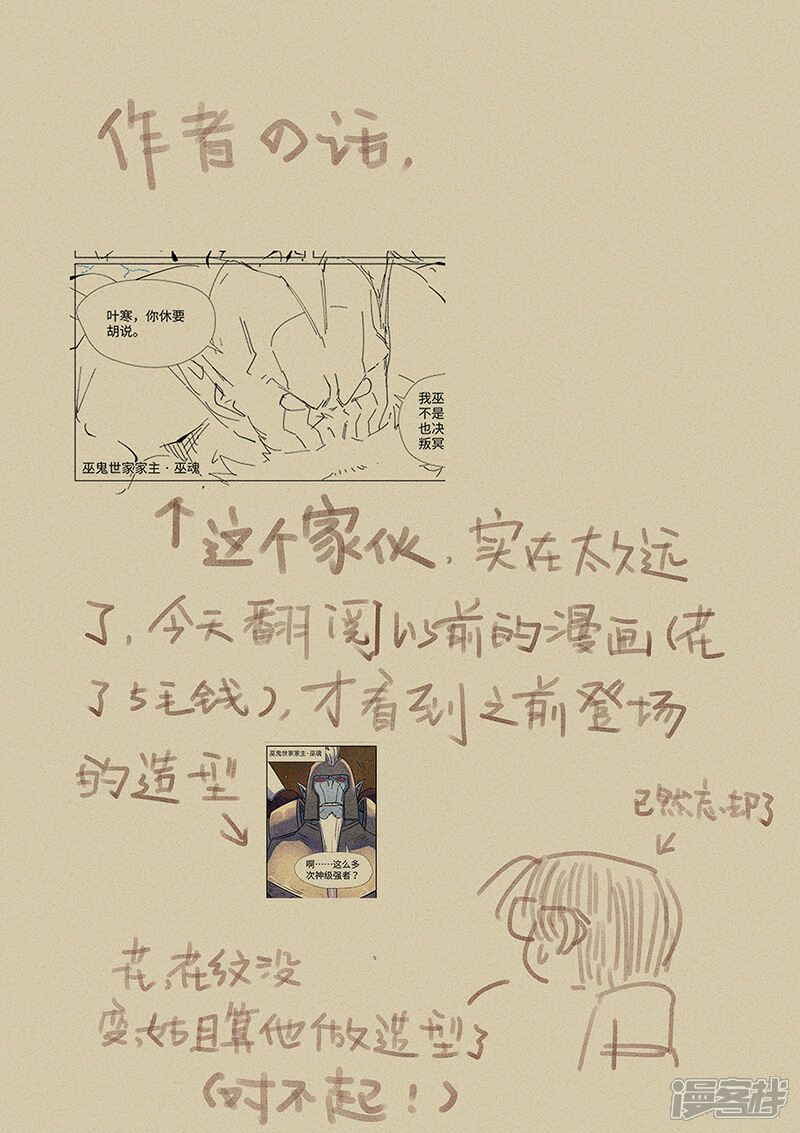 作者の话,
叶寒，你休要
胡说。
我巫
不是
也决
叛冥
巫鬼世家家主·巫魂
↑这个家伙,实在太久远
了,今天翻阅以前的漫画(花
了5毛钱),才看到之前登场
的造型
巫鬼世家家主·巫魂
啊……这么多
次神级强者？
已然忘却了
花,花纹没
变,姑且算他做造型了
(对不起!)
漫客栈